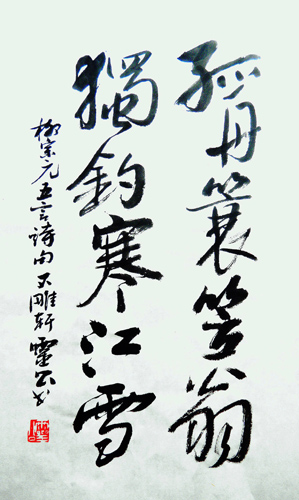 孤舟簑笠翁
獨釣寒江雪
柳宗元五言詩句天雕軒靈公书